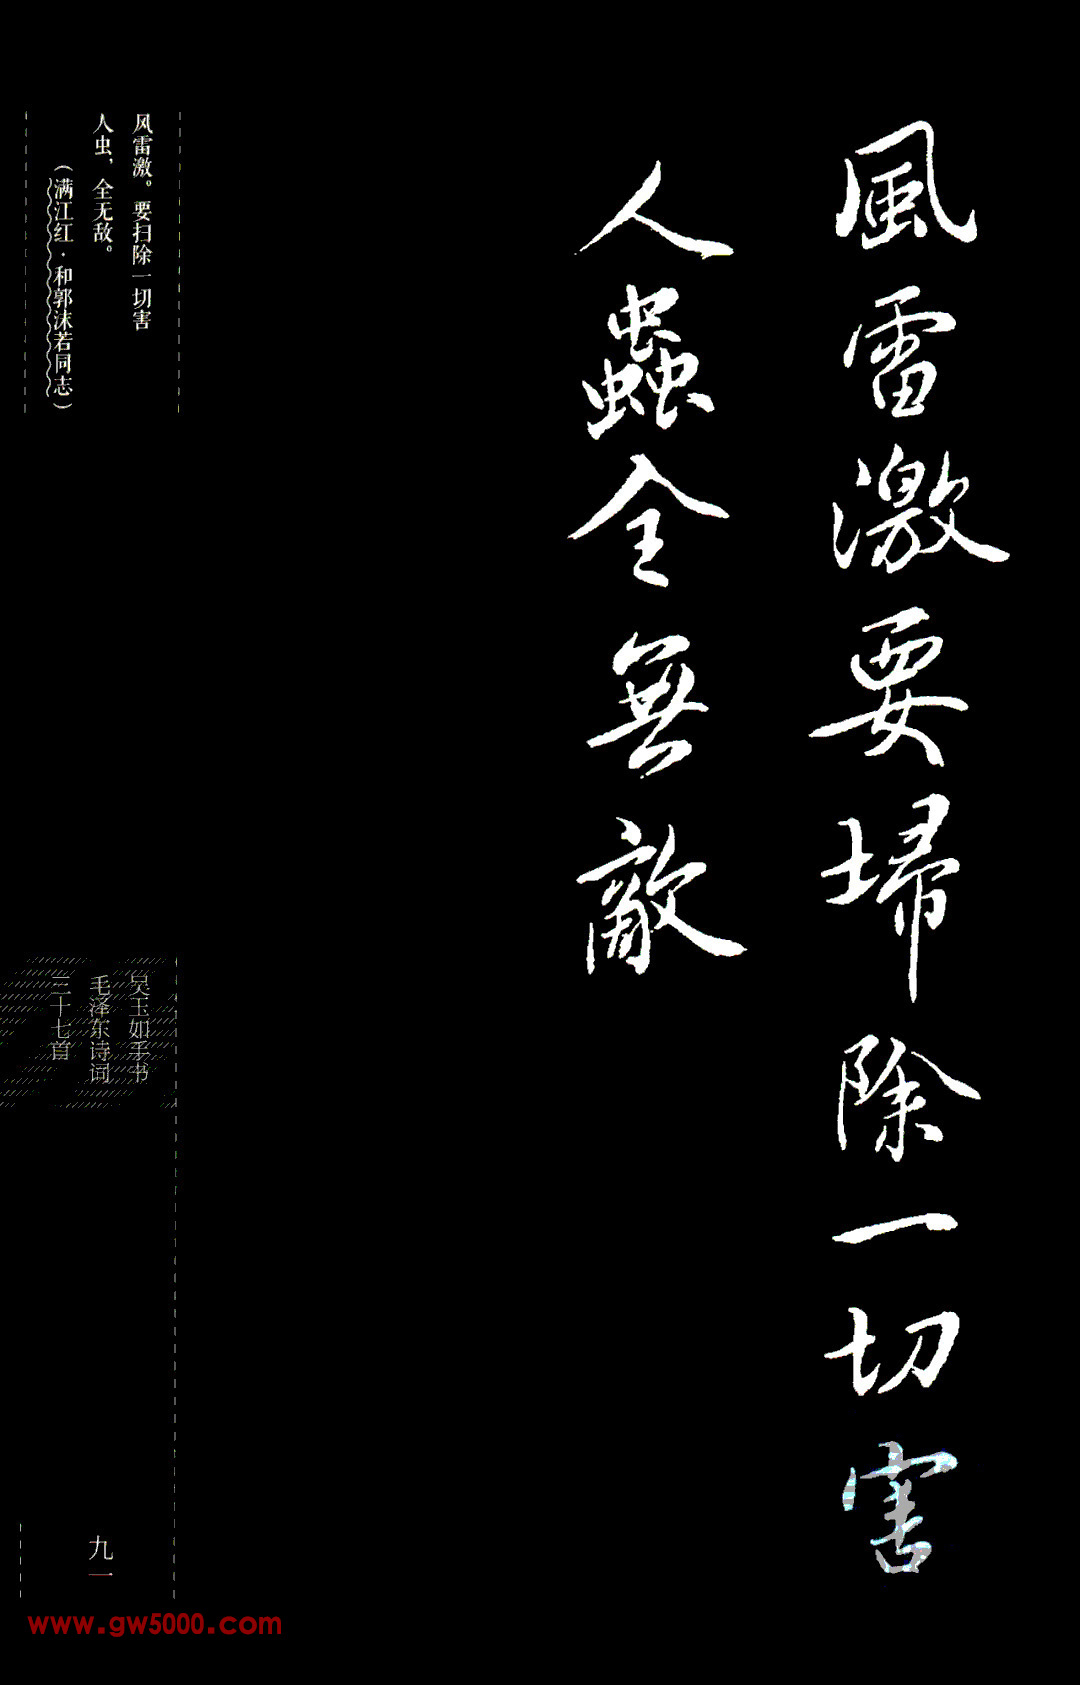 風雷激要掃除一切害
人蟲全無敵
风雷激。要扫除一切害
人虫，全无敌。
（满江红·和郭沫若同志）
吴玉如手书
毛泽东诗词
三十七首
九一
www.gw5000.com